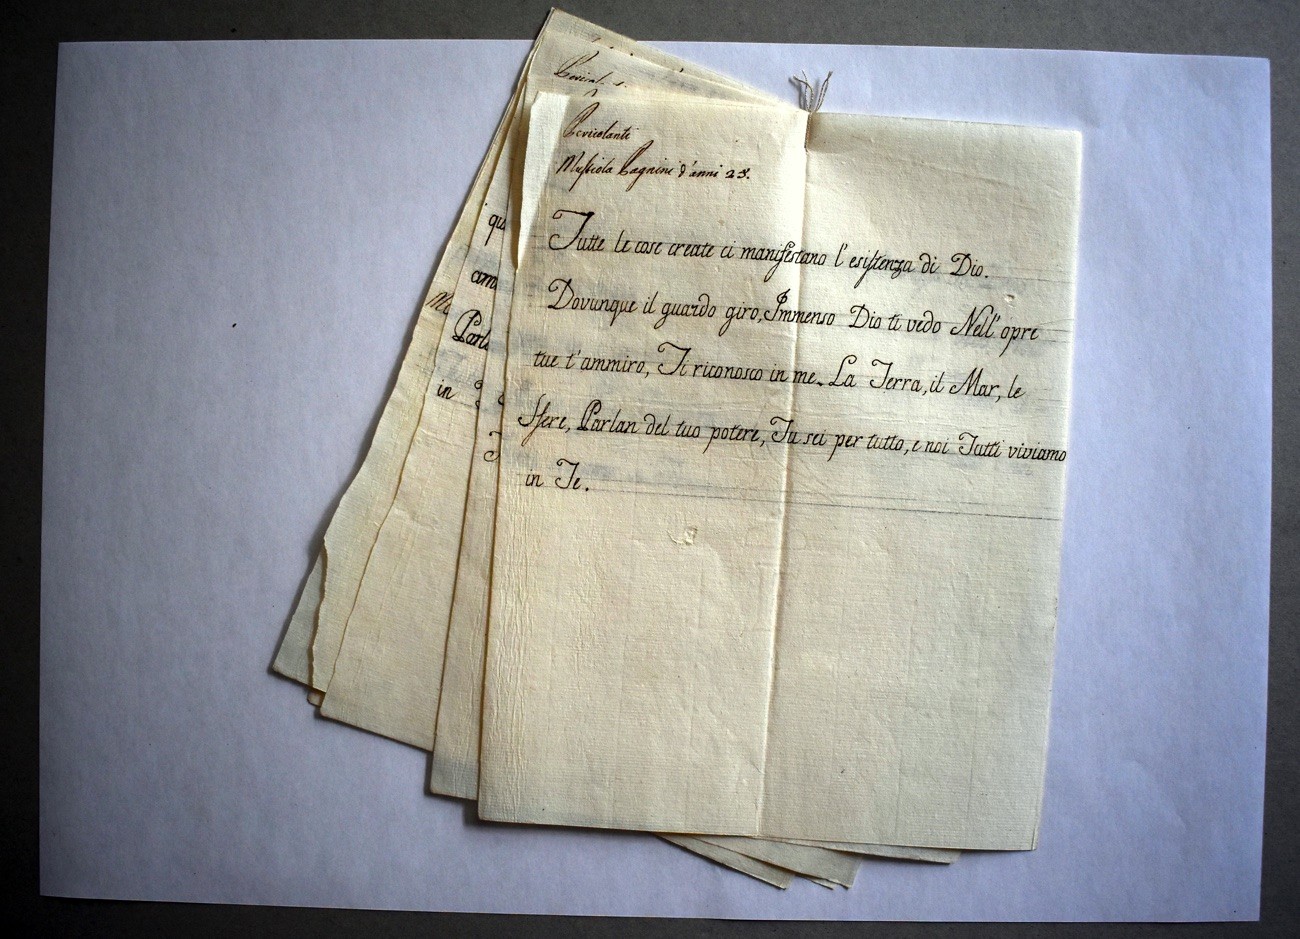 Pericolanti
Mustiola Pagnini d'anni 23.
Tutte le cose create ci manifestano l'esistenza di Dio.
Dovunque il guardo giro, Immenso Dio ti vedo Nell'opre
tue t'ammiro, Ti riconosco in me. La Terra, il Mar, le
Sfere, Parlan del tuo potere, Tu sei per tutto, e noi Tutti viviamo
in Te.
qu
am
Parla
in